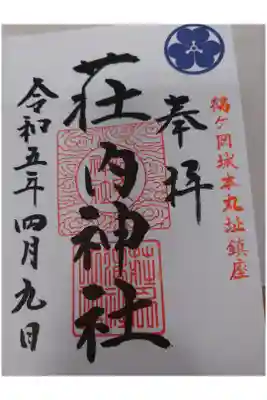 鶴ヶ岡城本丸址鎮座
奉拝
荘内神社
令和五年四月九日